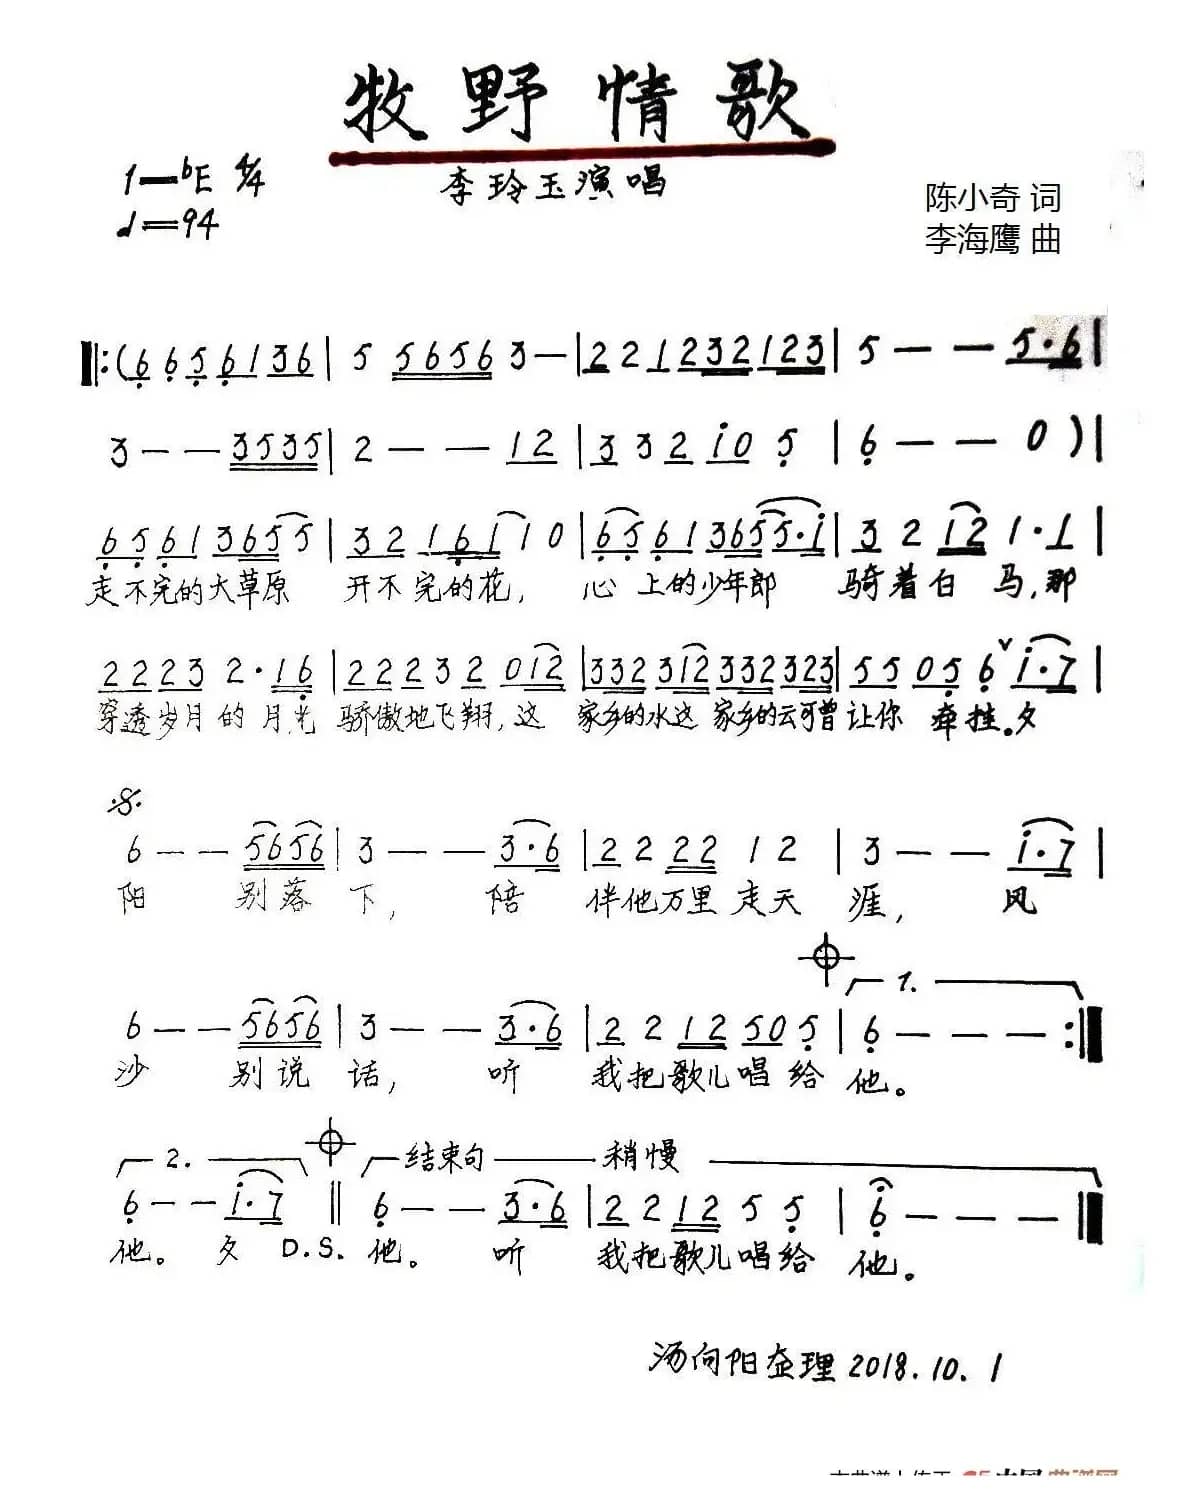 牧野情歌
1=bE 4/4
李玲玉演唱
♩=94
陈小奇 词
李海鹰 曲
‖:(6 6 5 6 1 3 6 | 5 5 6 5 6 3 — | 2 2 1 2 3 2 1 2 3 | 5 — — 5·6 |
3 — — 3 5 3 5 | 2 — — 1 2 | 3 3 2 i 0 5 | 6 — — 0 ) |
6 5 6 1 3 6 5 5 | 3 2 1 1 6 1 1 0 | 6 5 6 1 3 6 5 5·i | 3 2 1 2 1·1 |
走不完的大草原 开不完的花, 心上的少年郎 骑着白马,那
2 2 2 3 2·1 6 | 2 2 2 3 2 0 1 2 | 3 3 2 3 1 2 3 3 2 3 2 3 | 5 5 0 5 6 ∨ i·7 |
穿透岁月的月光 骄傲地飞翔,这 家乡的水这家乡的云可曾让你牵挂。夕
𝄋
6 — — 5 6 5 6 | 3 — — 3·6 | 2 2 2 2 1 2 | 3 — — i·7 |
阳 别落下, 陪 伴他万里走天涯, 风
1.
6 — — 5 6 5 6 | 3 — — 3·6 | 2 2 1 2 5 0 5 | 6 — — — :‖
沙 别说话, 听 我把歌儿唱给他。
2. 结束句 稍慢
6 — — i·7 ‖ 6 — — 3·6 | 2 2 1 2 5 5 | 6 — — — ‖
他。夕 D.S. 他。 听 我把歌儿唱给 他。
汤向阳整理 2018.10.1